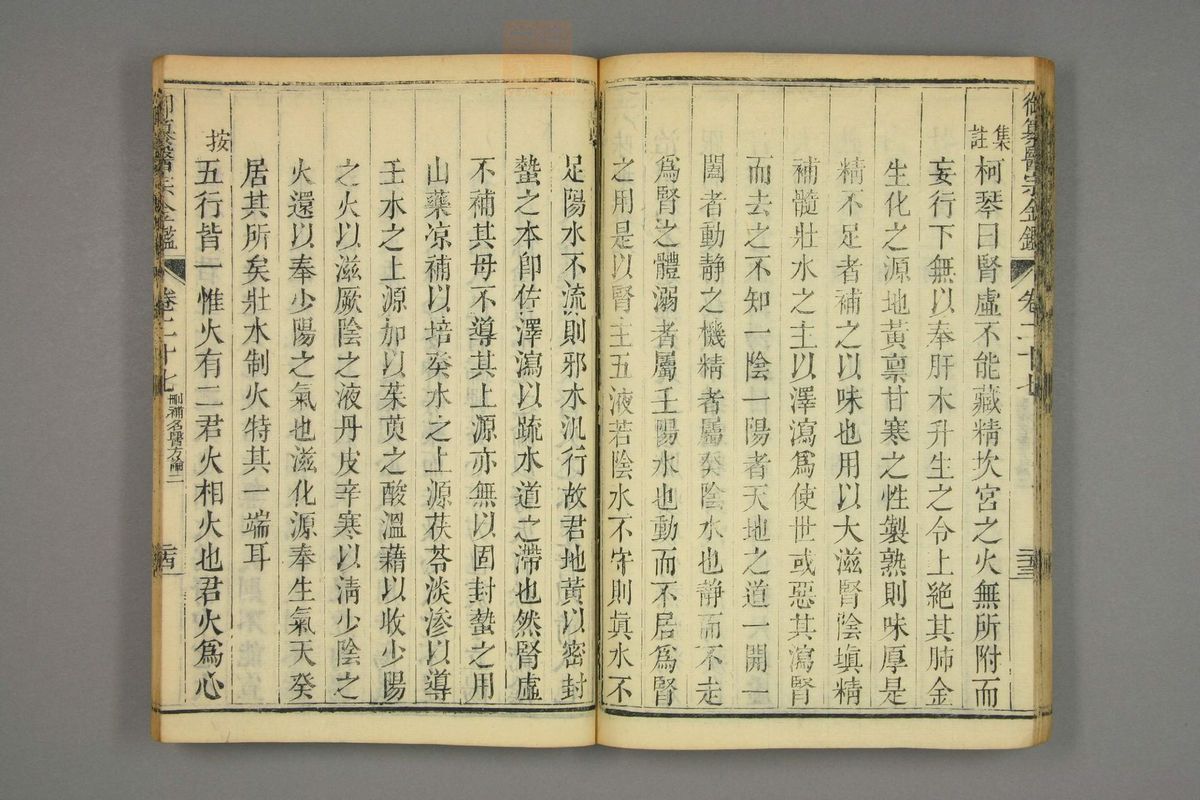 御纂醫宗金鑑 卷二十七 二十三
集註
柯琴曰腎虛不能藏精坎宮之火無所附而
妄行下無以奉肝木升生之令上絶其肺金
生化之源地黃禀甘寒之性製熟則味厚是
精不足者補之以味也用以大滋腎陰塡精
補髓壯水之主以澤瀉爲使世或惡其瀉腎
而去之不知一陰一陽者天地之道一開一
闔者動靜之機精者屬癸陰水也靜而不走
爲腎之體溺者屬壬陽水也動而不居爲腎
之用是以腎主五液若陰水不守則眞水不
足陽水不流則邪水汎行故君地黃以密封
蟄之本卽佐澤瀉以疏水道之滯也然腎虛
不補其母不導其上源亦無以固封蟄之用
山藥凉補以培癸水之上源茯苓淡滲以導
壬水之上源加以茱萸之酸溫藉以收少陽
之火以滋厥陰之液丹皮辛寒以淸少陰之
火還以奉少陽之氣也滋化源奉生氣天癸
居其所矣壯水制火特其一端耳
按
五行皆一惟火有二君火相火也君火爲心
御纂醫宗金鑑 卷二十七 刪補名醫方論二